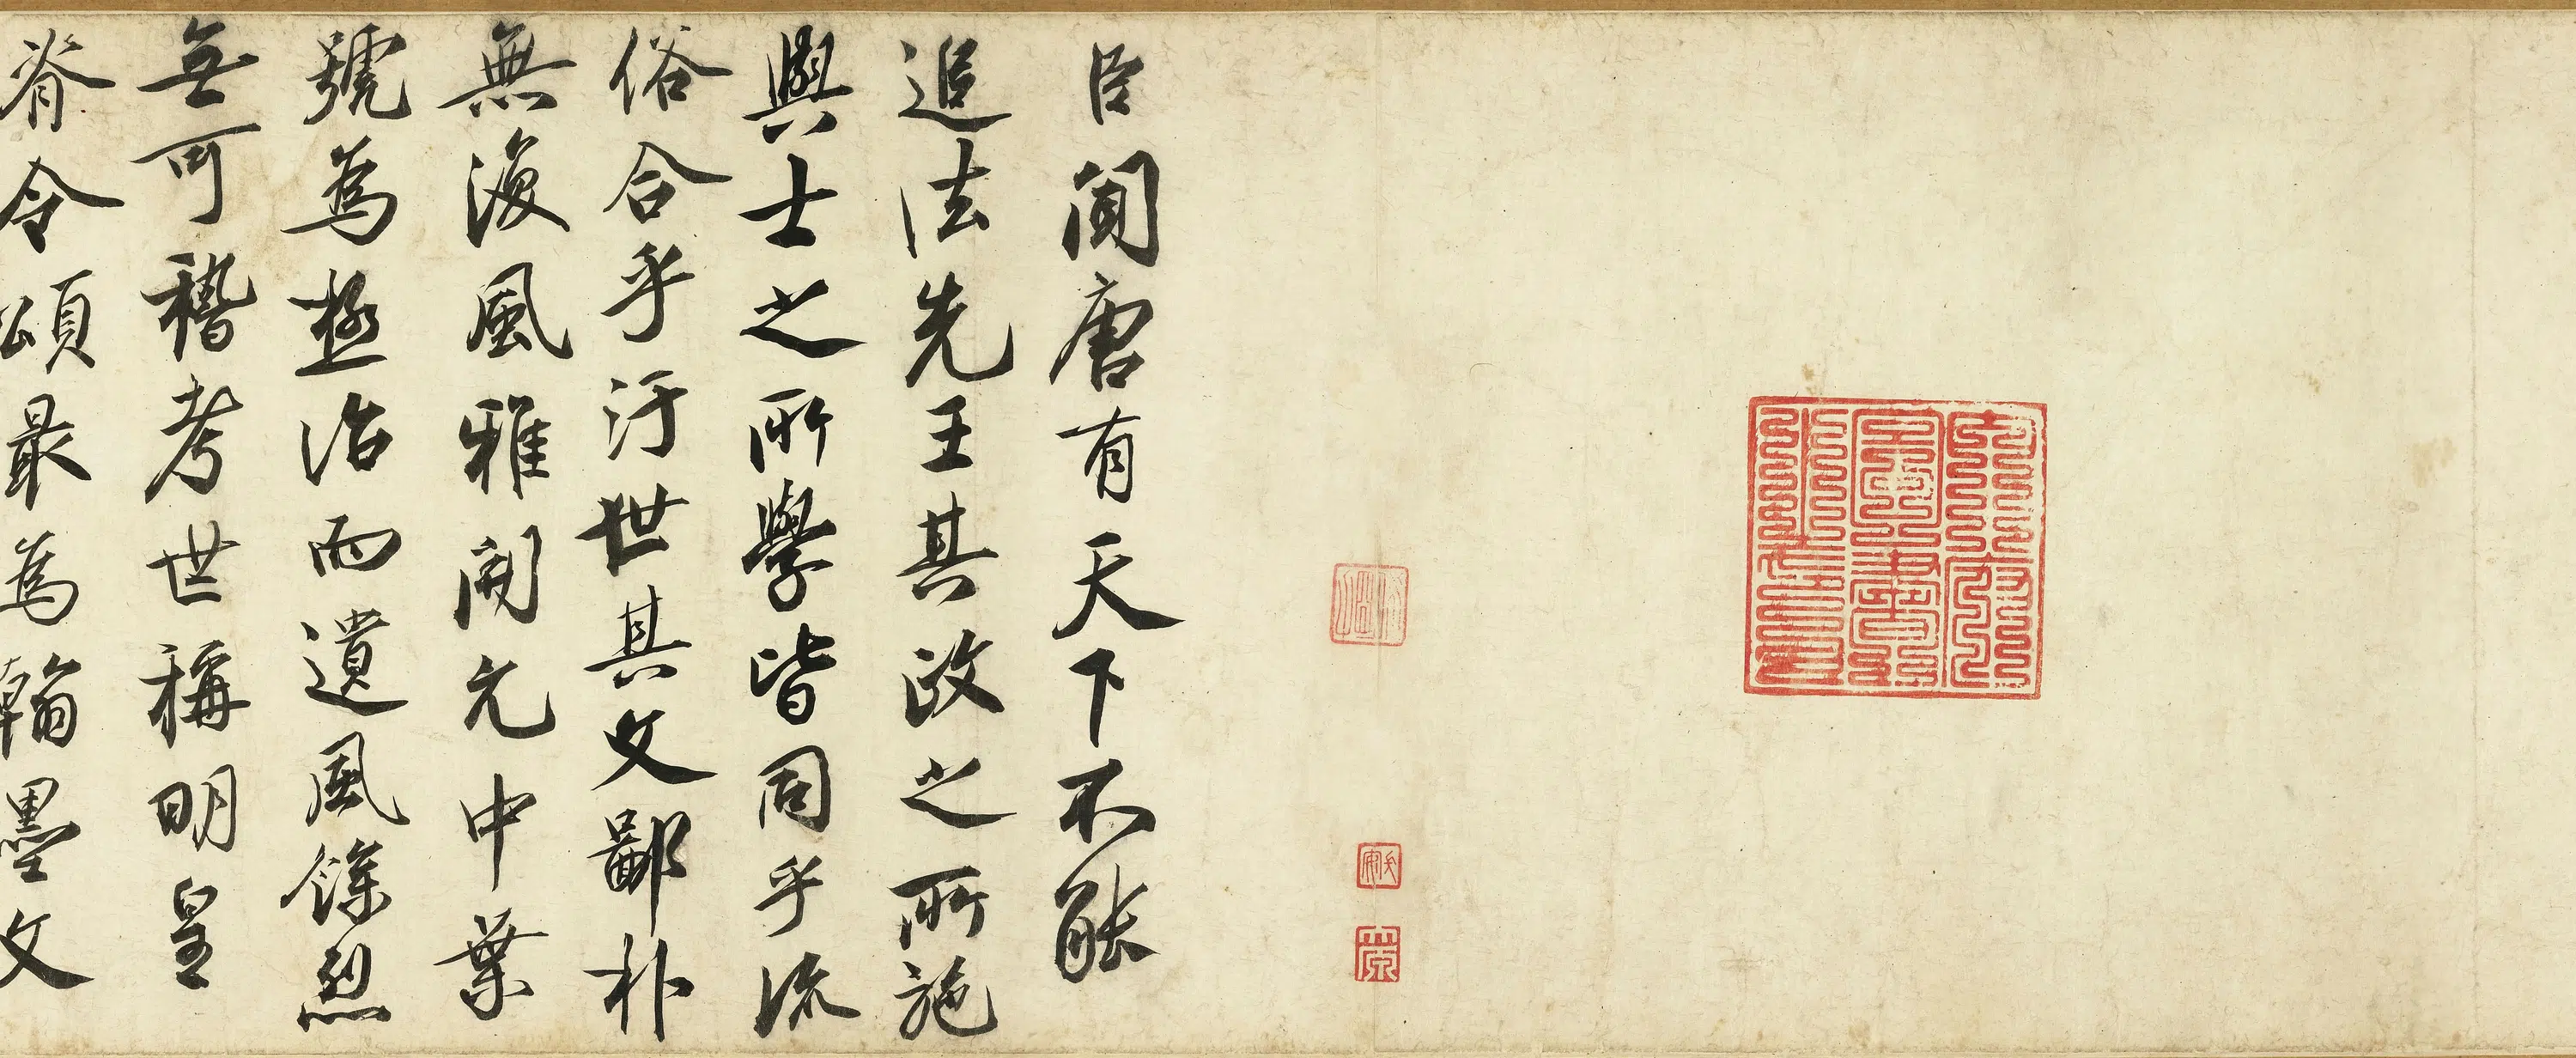 臣聞唐有天下不能
追法先王其政之所施
與士之所學皆同乎流
俗合乎汙世其文鄙朴
無復風雅開元中葉
號為極治而遺風餘烈
無可稽考世稱明皇
脊令頌最為翰墨文